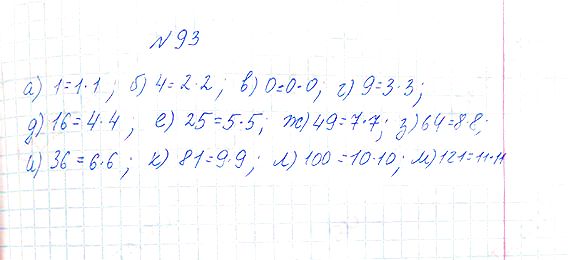 №93
а) 1=1·1; б) 4=2·2; в) 0=0·0; г) 9=3·3;
д) 16=4·4; е) 25=5·5; ж) 49=7·7; з) 64=8·8;
и) 36=6·6; к) 81=9·9; л) 100=10·10; м) 121=11·11